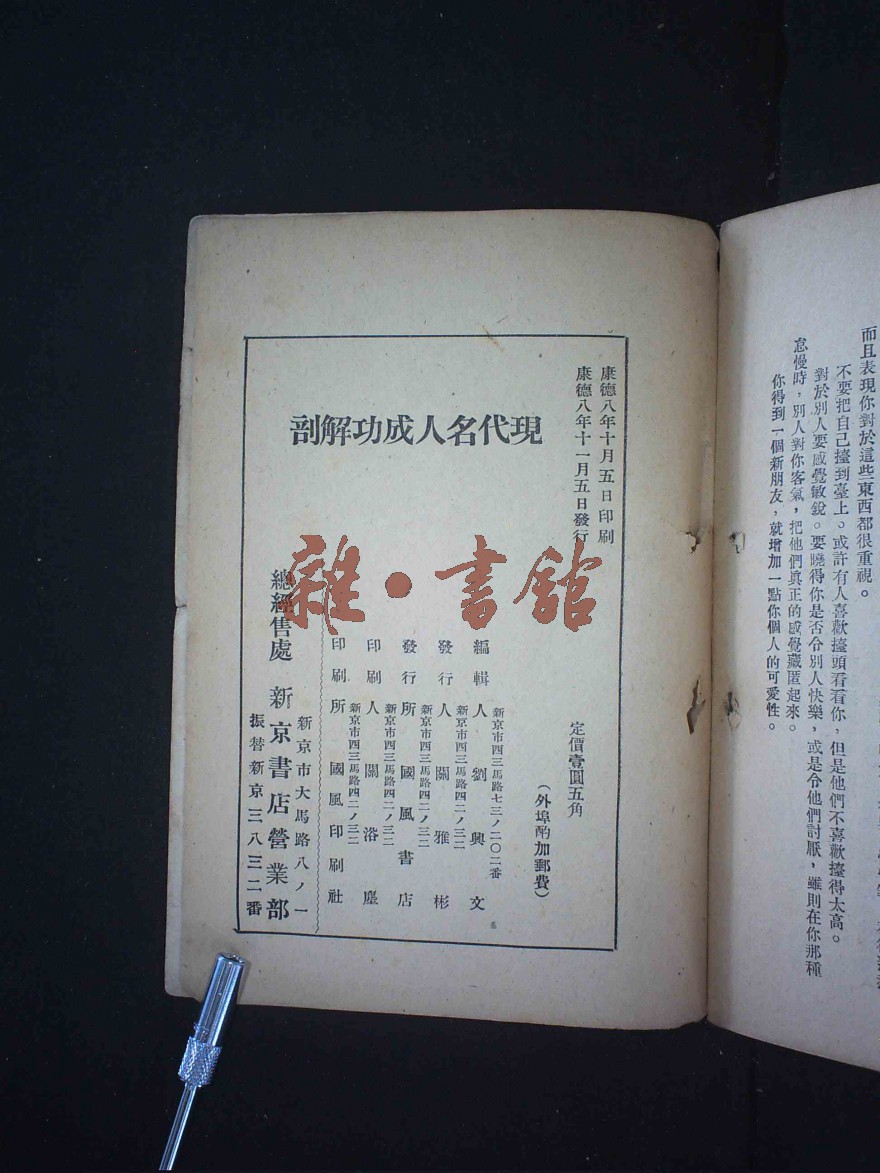 而且表現你對於這些東西都很重視。
不要把自己擡到臺上。或許有人喜歡擡頭看看你，但是他們不喜歡擡得太高。
對於別人要感覺敏銳。要曉得你是否令別人快樂，或是令他們討厭，雖則在你那種
怠慢時，別人對你客氣，把他們眞正的感覺藏匿起來。
你得到一個新朋友，就增加一點你個人的可愛性。
康德八年十月五日印刷
康德八年十一月五日發行
現代名人成功解剖
定價壹圓五角
（外埠酌加郵費）
新京市四三馬路七三ノ二〇二番
編輯人 劉興文
新京市四三馬路四二ノ三二
發行人 關雅彬
新京市四三馬路四二ノ三二
發行所 國風書店
新京市四三馬路四二ノ三二
印刷人 關浴塵
新京市四三馬路四二ノ三二
印刷所 國風印刷社
總經售處 新京書店營業部
新京市大馬路八ノ一
振替新京三八三二番
雜·書館